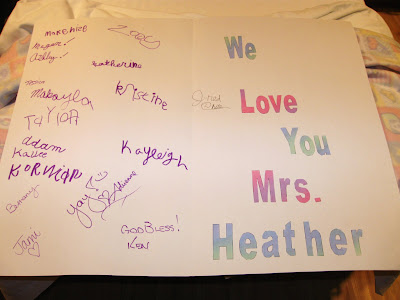 MaKenzie
Zoey
Maggie!
Ashley!
Katherine
Makayla
Kristine
TaYlOR
Adam
Kallee
Kayleigh
Yay!
GOD BLESS!
KEN
Jami
We
Love
You
Mrs.
Heather